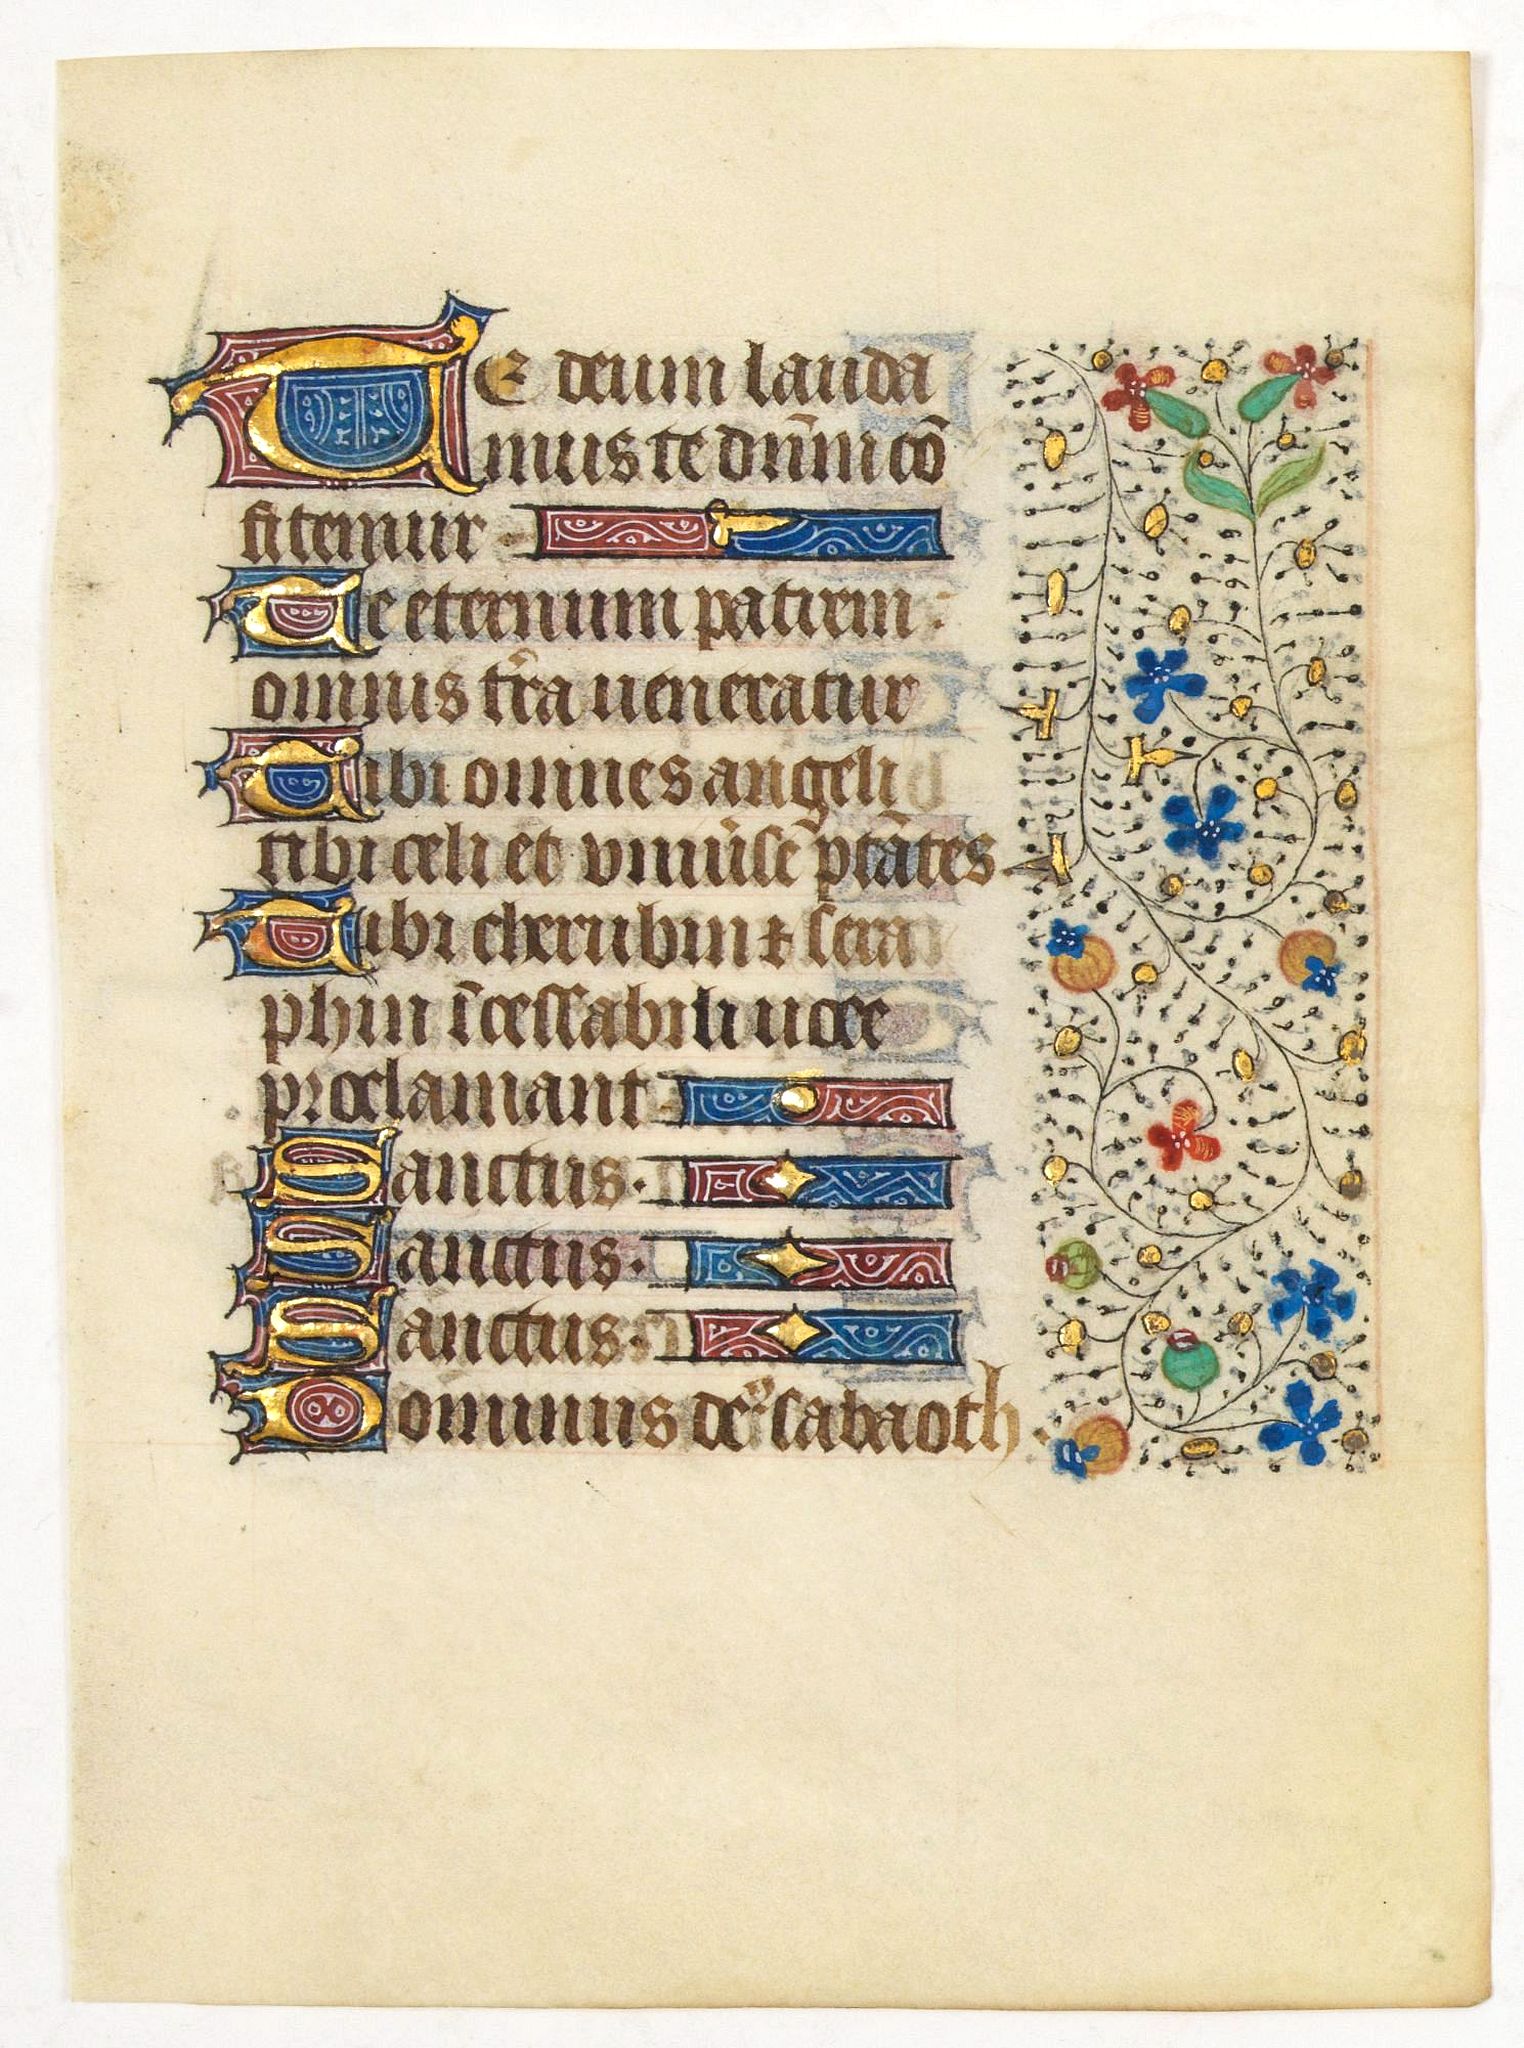 Te deum lauda
mus te dn̄m cō
fitemur
Te eternum patrem
omnis tr̄a ueneratur
Tibi omnes angeli
tibi celi et vniūse ptātes.
Tibi cherubin ⁊ sera
phin īcessabili uoce
proclamant
Sanctus.
Sanctus.
Sanctus.
Dominus deꝰ sabaoth.